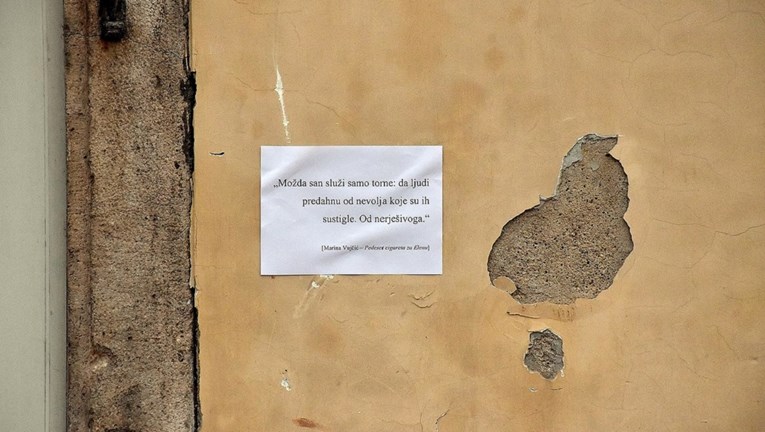 „Možda san služi samo tome: da ljudi
predahnu od nevolja koje su ih
sustigle. Od nerješivoga.“
[Marina Vujčić – Pedeset cigareta za Elenu]